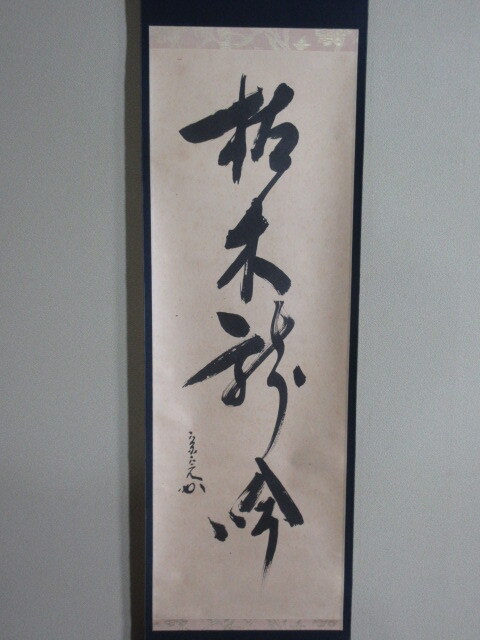 枯木龍吟